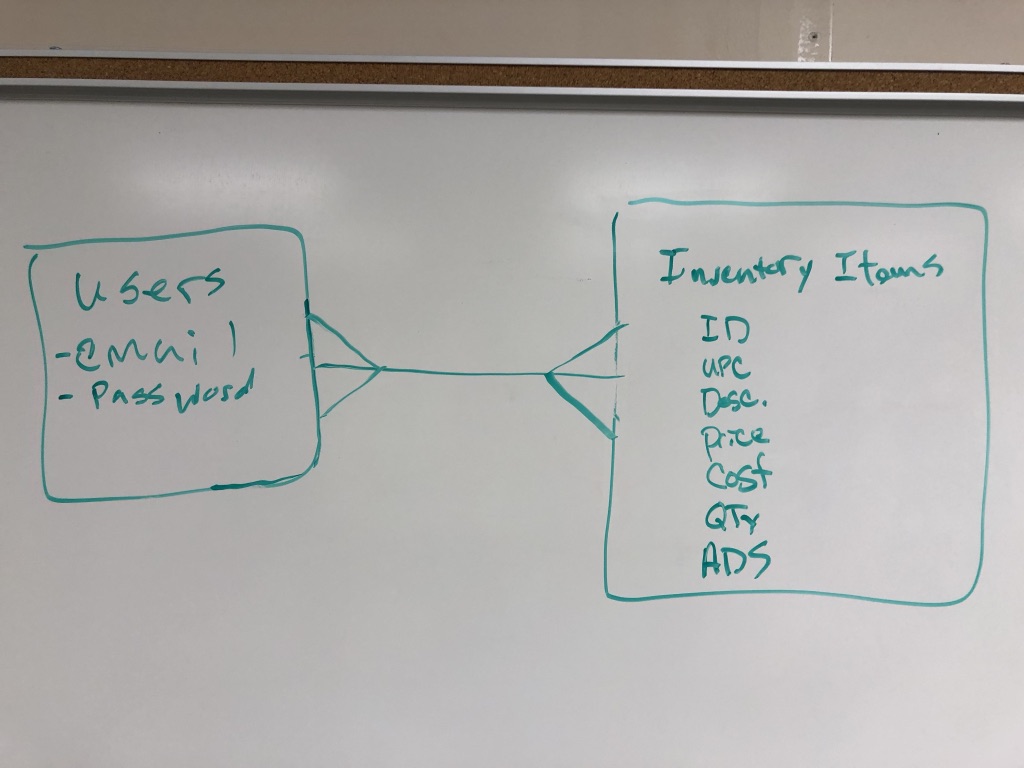 Users
- email
- Password
Inventory Items
ID
UPC
Desc.
Price
Cost
QTY
ADS